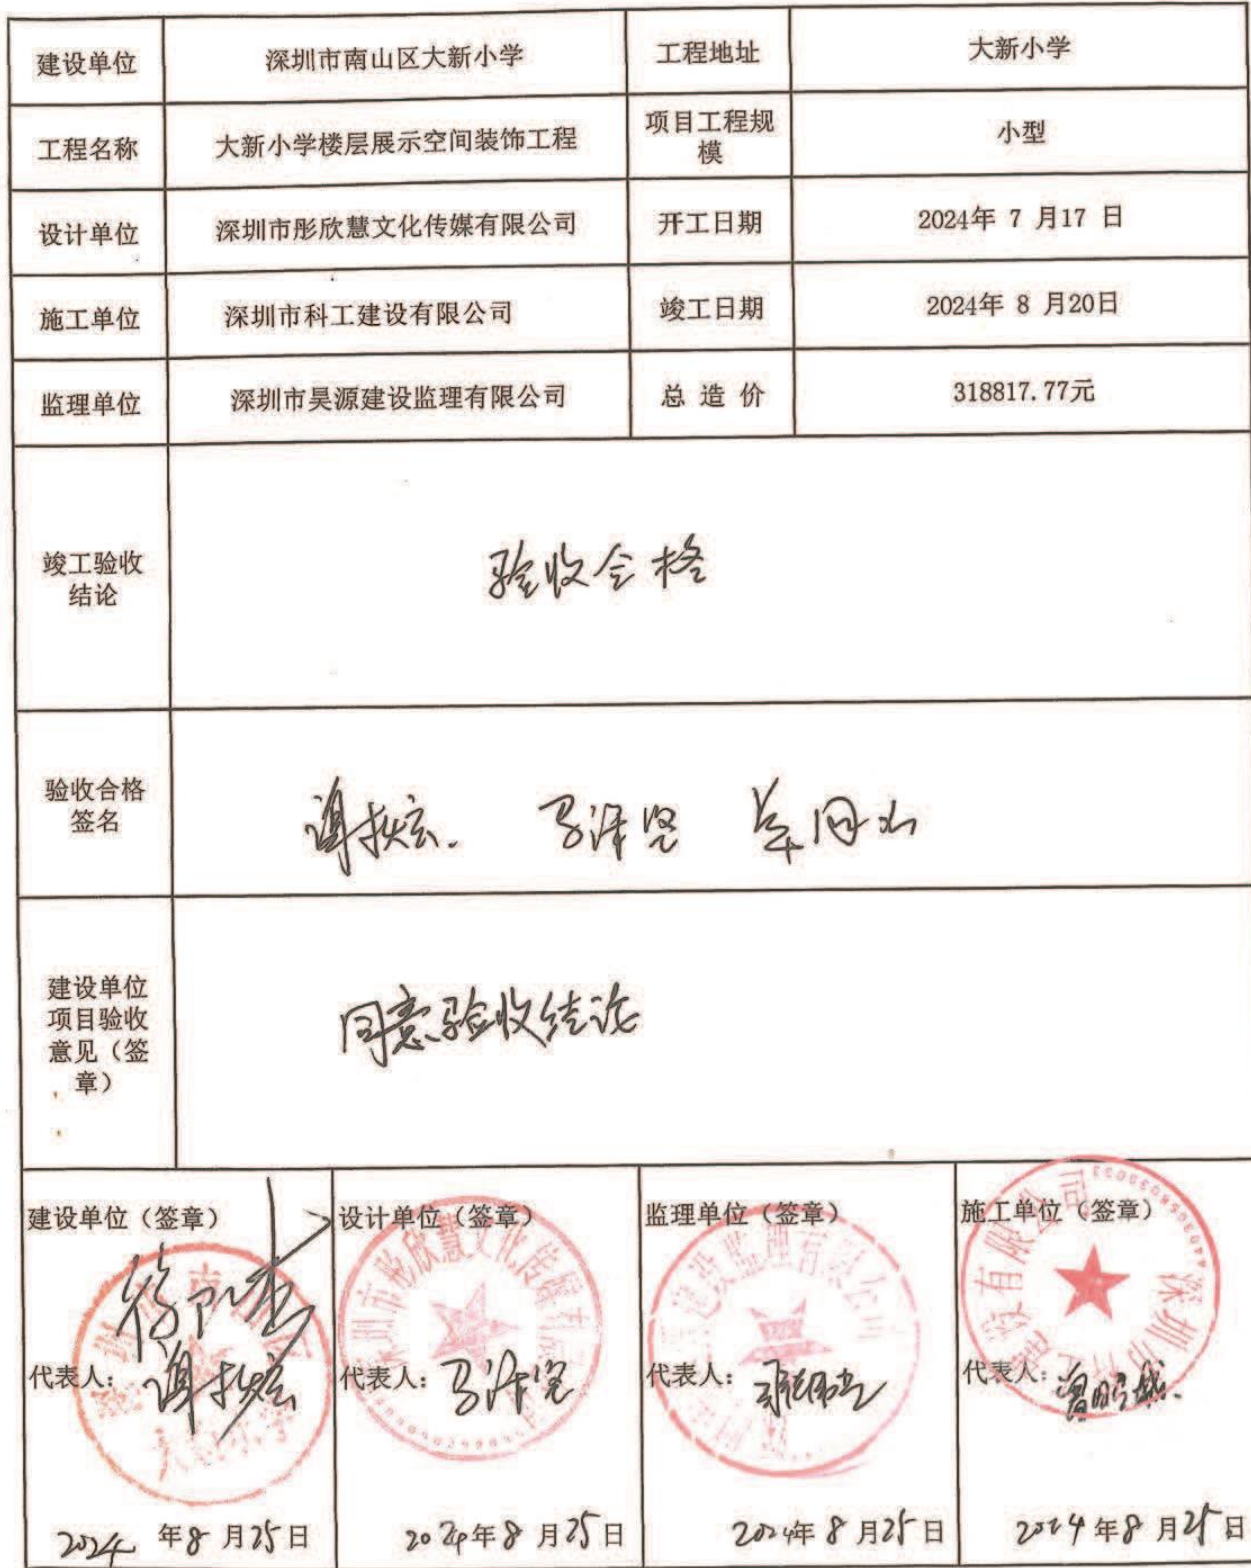 建设单位 深圳市南山区大新小学 工程地址 大新小学
工程名称 大新小学楼层展示空间装饰工程 项目工程规
模 小型
设计单位 深圳市彤欣慧文化传媒有限公司 开工日期 2024年 7 月17 日
施工单位 深圳市科工建设有限公司 竣工日期 2024年 8 月20日
监理单位 深圳市昊源建设监理有限公司 总 造 价 318817.77元
竣工验收
结论
验收合格
验收合格
签名
建设单位
项目验收
意见（签
章）
同意验收结论
建设单位（签章） 设计单位（签章） 监理单位（签章） 施工单位（签章）
代表人： 代表人： 代表人： 代表人：
2024 年8 月25日 2024年8 月25日 2024年 8 月25日 2024年8 月25日